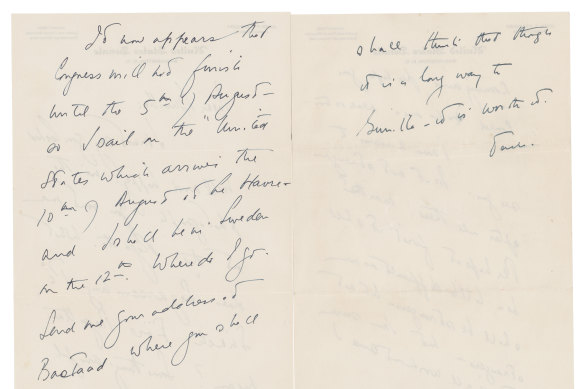 It now appears that
Congress will not finish
until the 5th of August -
so I sail on the "United
States which arrives the
10th of August at Le Havre -
and I shall be in Sweden
on the 12th. Where do I go.
Send me your address at
Bastaad where you shall
shall think that though
it is a long way to
Gunilla - it is worth it.